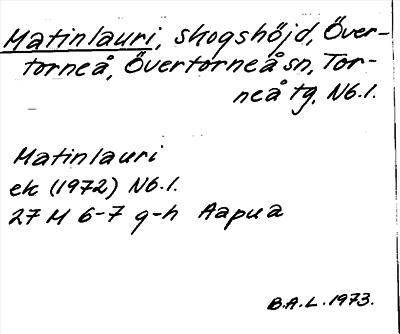 Matinlauri, skogshöjd, Över-
torneå, Övertorneå sn, Tor-
neå tg, Nb.l.
Matinlauri
ek (1972) Nb.l.
27 M 6-7 g-h Aapua
B.A.L. 1973.